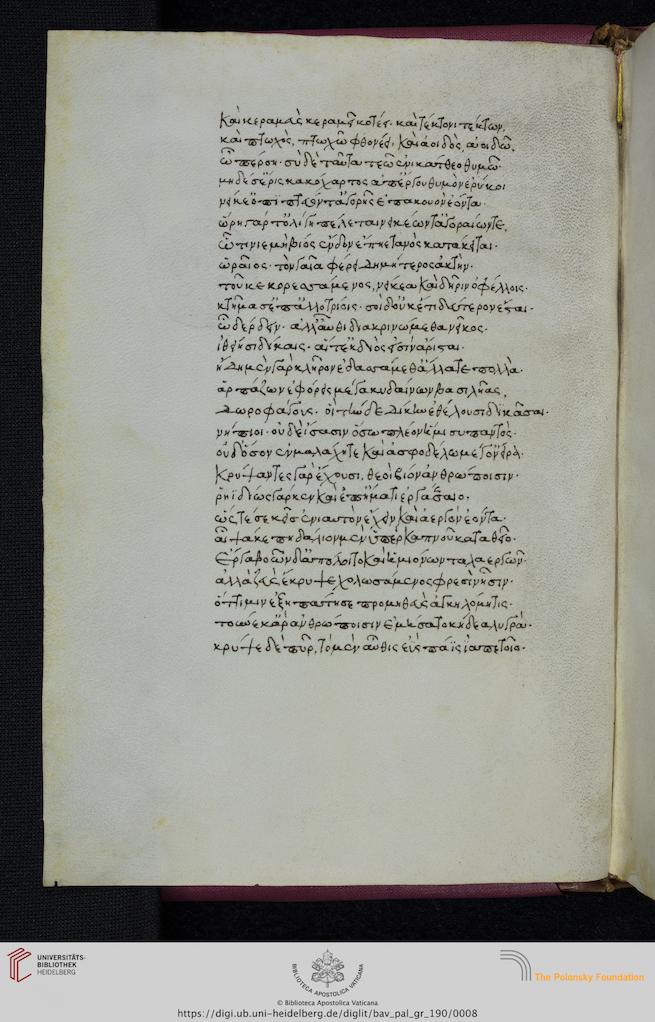 Καὶ κεραμεὺς κεραμεῖ κοτέει· καὶ τέκτονι τέκτων,
καὶ πτωχὸς, πτωχῶ φθονέει, καὶ ἀοιδὸς ἀοιδῶ.
ὦ πέρση· σὺ δὲ ταῦτα τεῶ ἐνικάτθεο θυμῶ·
μηδέ σ' ἔρις κακόχαρτος ἀπ' ἔργου θυμὸν ἐρύκοι
νείκε' ὀπιπτεύοντ' ἀγορῆς ἐπακουὸν ἐόντα·
ὥρη γάρ τ' ὀλίγη πέλεται νεικέων τ' ἀγοράων τε,
ὧ τινι μὴ βίος ἔνδον ἐπηετανὸς κατάκειται·
ὡραῖος· τὸν γαῖα φέρει Δημήτερος ἀκτήν·
τοῦ κε κορεσσάμενος, νείκεα καὶ δῆριν ὀφέλλοις·
κτήμασ' ἐπ' ἀλλοτρίοις· σοὶ δ' οὐκέτι δεύτερον ἔσται
ὧδ' ἔρδειν· ἀλλ' αὖθι διακρινώμεθα νεῖκος·
ἰθείησι δίκαις· αἵ τ' ἐκ διός εἰσιν ἄρισται·
ἤδη μὲν γὰρ κλῆρον ἐδασσάμεθ' ἄλλα τε πολλὰ·
ἁρπάζων ἐφόρεις μέγα κυδαίνων βασιλῆας,
Δωροφάγους· οἳ τήνδε Δίκην ἐθέλουσι δικάσσαι·
νήπιοι· οὐδὲ ἴσασιν ὅσω πλέον ἥμισυ παντὸς·
οὐδ' ὅσον ἐν μαλάχη τε καὶ ἀσφοδέλω μέγ' ὄνειαρ·
Κρύψαντες γὰρ ἔχουσι, θεοὶ βίον ἀνθρώποισιν·
ῥηϊδίως γάρ κεν καὶ ἐπ' ἤματι ἐργάσσαιο·
ὥς τέ σε κεἰς ἐνιαυτὸν ἔχειν καὶ ἀεργὸν ἐόντα·
αἶψά κε πηδάλιον μὲν ὑπὲρ καπνοῦ καταθεῖο·
Ἔργα βοῶν δ' ἀπόλοιτο καὶ ἡμιόνων ταλαεργῶν·
ἀλλὰ ζεὺς ἔκρυψε χολωσάμενος φρεσὶν ᾗσιν·
ὅττι μιν ἐξηπάτησε προμηθεὺς ἀγκυλομήτις·
τοὔνεκ' ἄρ' ἀνθρώποισιν ἐμήσατο κήδεα λυγρὰ·
κρύψε δὲ πῦρ, τὸ μὲν αὖθις ἐῢς πάϊς ἰαπετοῖο·
UNIVERSITÄTS-
BIBLIOTHEK
HEIDELBERG
BIBLIOTECA APOSTOLICA VATICANA
The Polonsky Foundation
© Biblioteca Apostolica Vaticana
https://digi.ub.uni-heidelberg.de/diglit/bav_pal_gr_190/0008